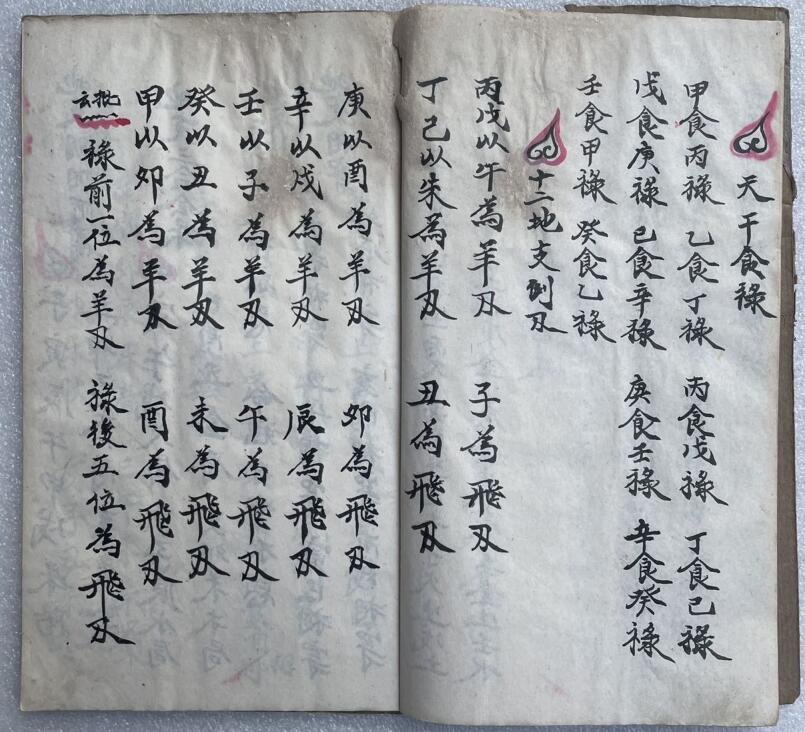 天干食祿
甲食丙祿 乙食丁祿 丙食戊祿 丁食己祿
戊食庚祿 己食辛祿 庚食壬祿 辛食癸祿
壬食甲祿 癸食乙祿
十二地支到刃
丙戊以午為羊刃 子為飛刃
丁己以未為羊刃 丑為飛刃
庚以酉為羊刃 卯為飛刃
辛以戌為羊刃 辰為飛刃
壬以子為羊刃 午為飛刃
癸以丑為羊刃 未為飛刃
甲以卯為羊刃 酉為飛刃
批云 祿前一位為羊刃 祿後五位為飛刃